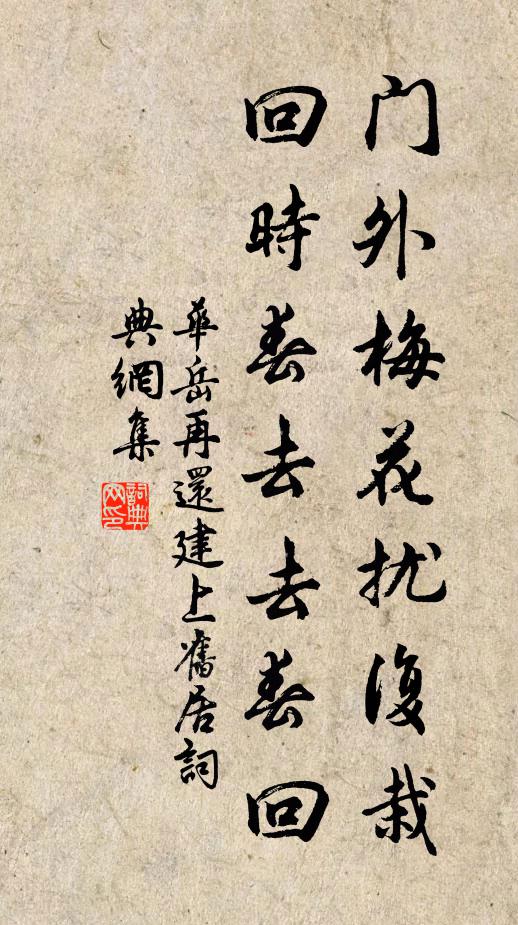 门外梅花扰復栽
回時春去去春回
華岳再還建上舊居詞
典網集
詞典
网印